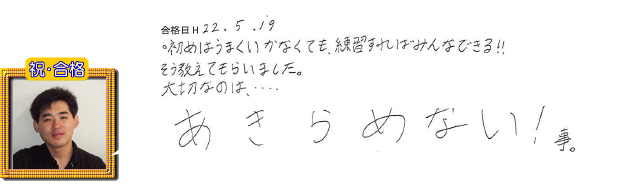 合格日 H 22.5.19
。初めはうまくいかなくても、練習すればみんなできる!!
そう教えてもらいました。
大切なのは、‥‥
祝・合格
あきらめない!事。